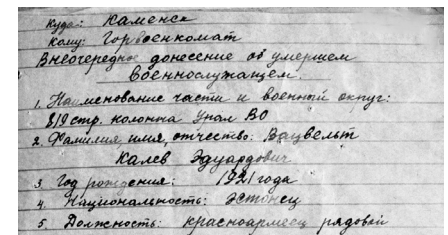 Куда: Каменск
Кому: Горвоенкомат
Внеочередное донесение об умершем
Военнослужащем.
1. Наименование части и военный округ:
819 стр. колонна Урал ВО
2. Фамилия имя, отчество: Вацвельт
Калев Эдуардович
3. Год рождения: 1921 года
4. Национальность: Эстонец
5. Должность: красноармеец рядовой